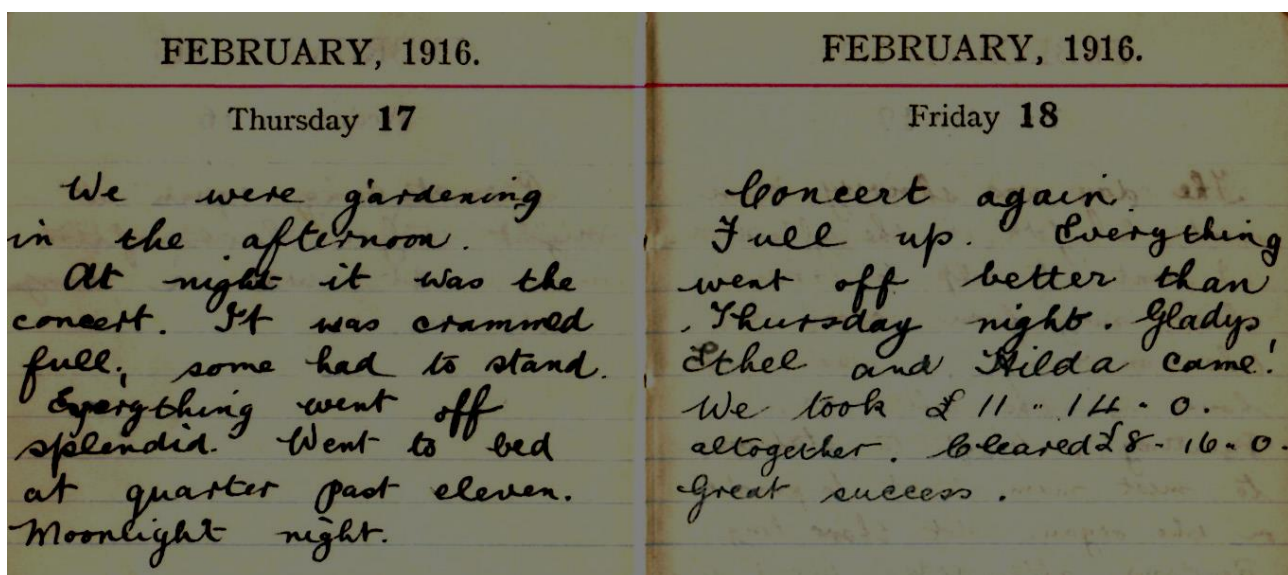 FEBRUARY, 1916.
Thursday 17
We were gardening
in the afternoon.
At night it was the
concert. It was crammed
full; some had to stand.
Everything went off
splendid. Went to bed
at quarter past eleven.
Moonlight night.
FEBRUARY, 1916.
Friday 18
Concert again.
Full up. Everything
went off better than
Thursday night. Gladys,
Ethel and Hilda came.
We took £11-14-0.
altogether. Cleared £8-16-0.
Great success.